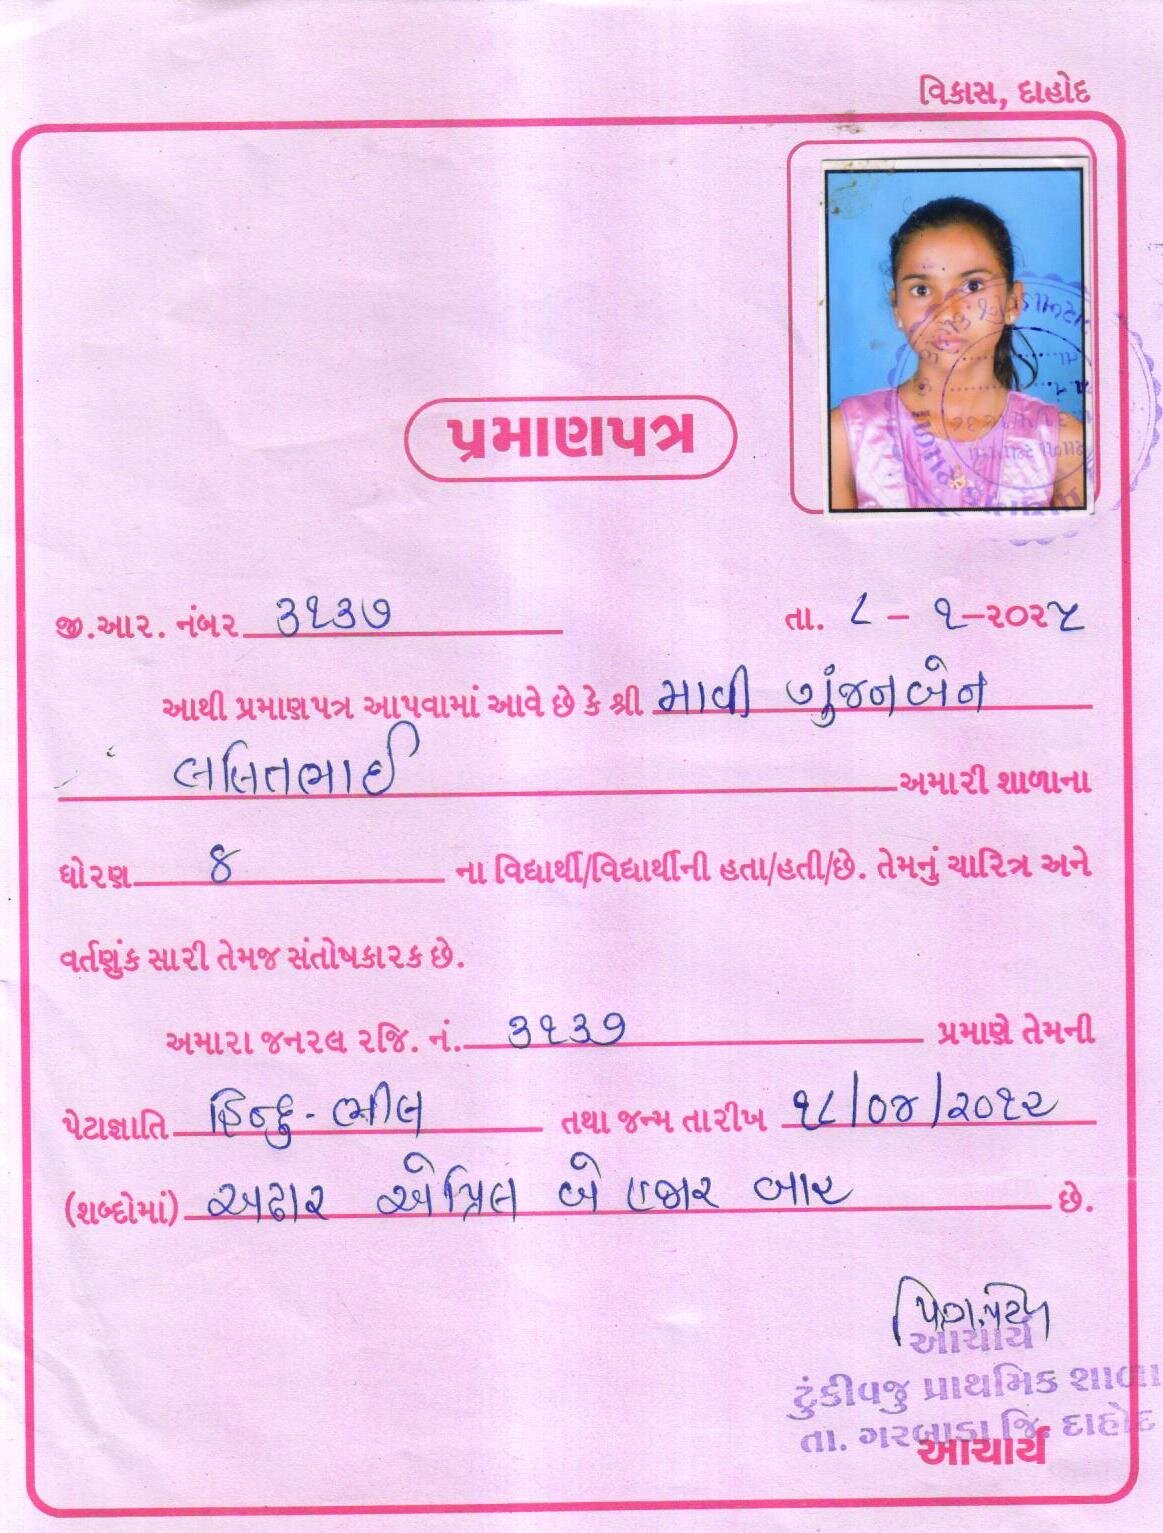 વિકાસ, દાહોદ
પ્રમાણપત્ર
જી.આર. નંબર ૩૧૩૭ તા. ૮ - ૧-૨૦૨૫
આથી પ્રમાણપત્ર આપવામાં આવે છે કે શ્રી માવી ગુંજનબેન
લલિતભાઈ અમારી શાળાના
ધોરણ ૪ ના વિદ્યાર્થી/વિદ્યાર્થીની હતા/હતી/છે. તેમનું ચારિત્ર અને
વર્તણુંક સારી તેમજ સંતોષકારક છે.
અમારા જનરલ રજિ. નં. ૩૧૩૭ પ્રમાણે તેમની
પેટાજ્ઞાતિ હિન્દુ - ભીલ તથા જન્મ તારીખ ૧૮/૦૪/૨૦૧૨
(શબ્દોમાં) અઢાર એપ્રિલ બે હજાર બાર છે.
આચાર્ય
ટુંકીવજુ પ્રાથમિક શાળા
તા. ગરબાડા જિ. દાહોદ
આચાર્ય